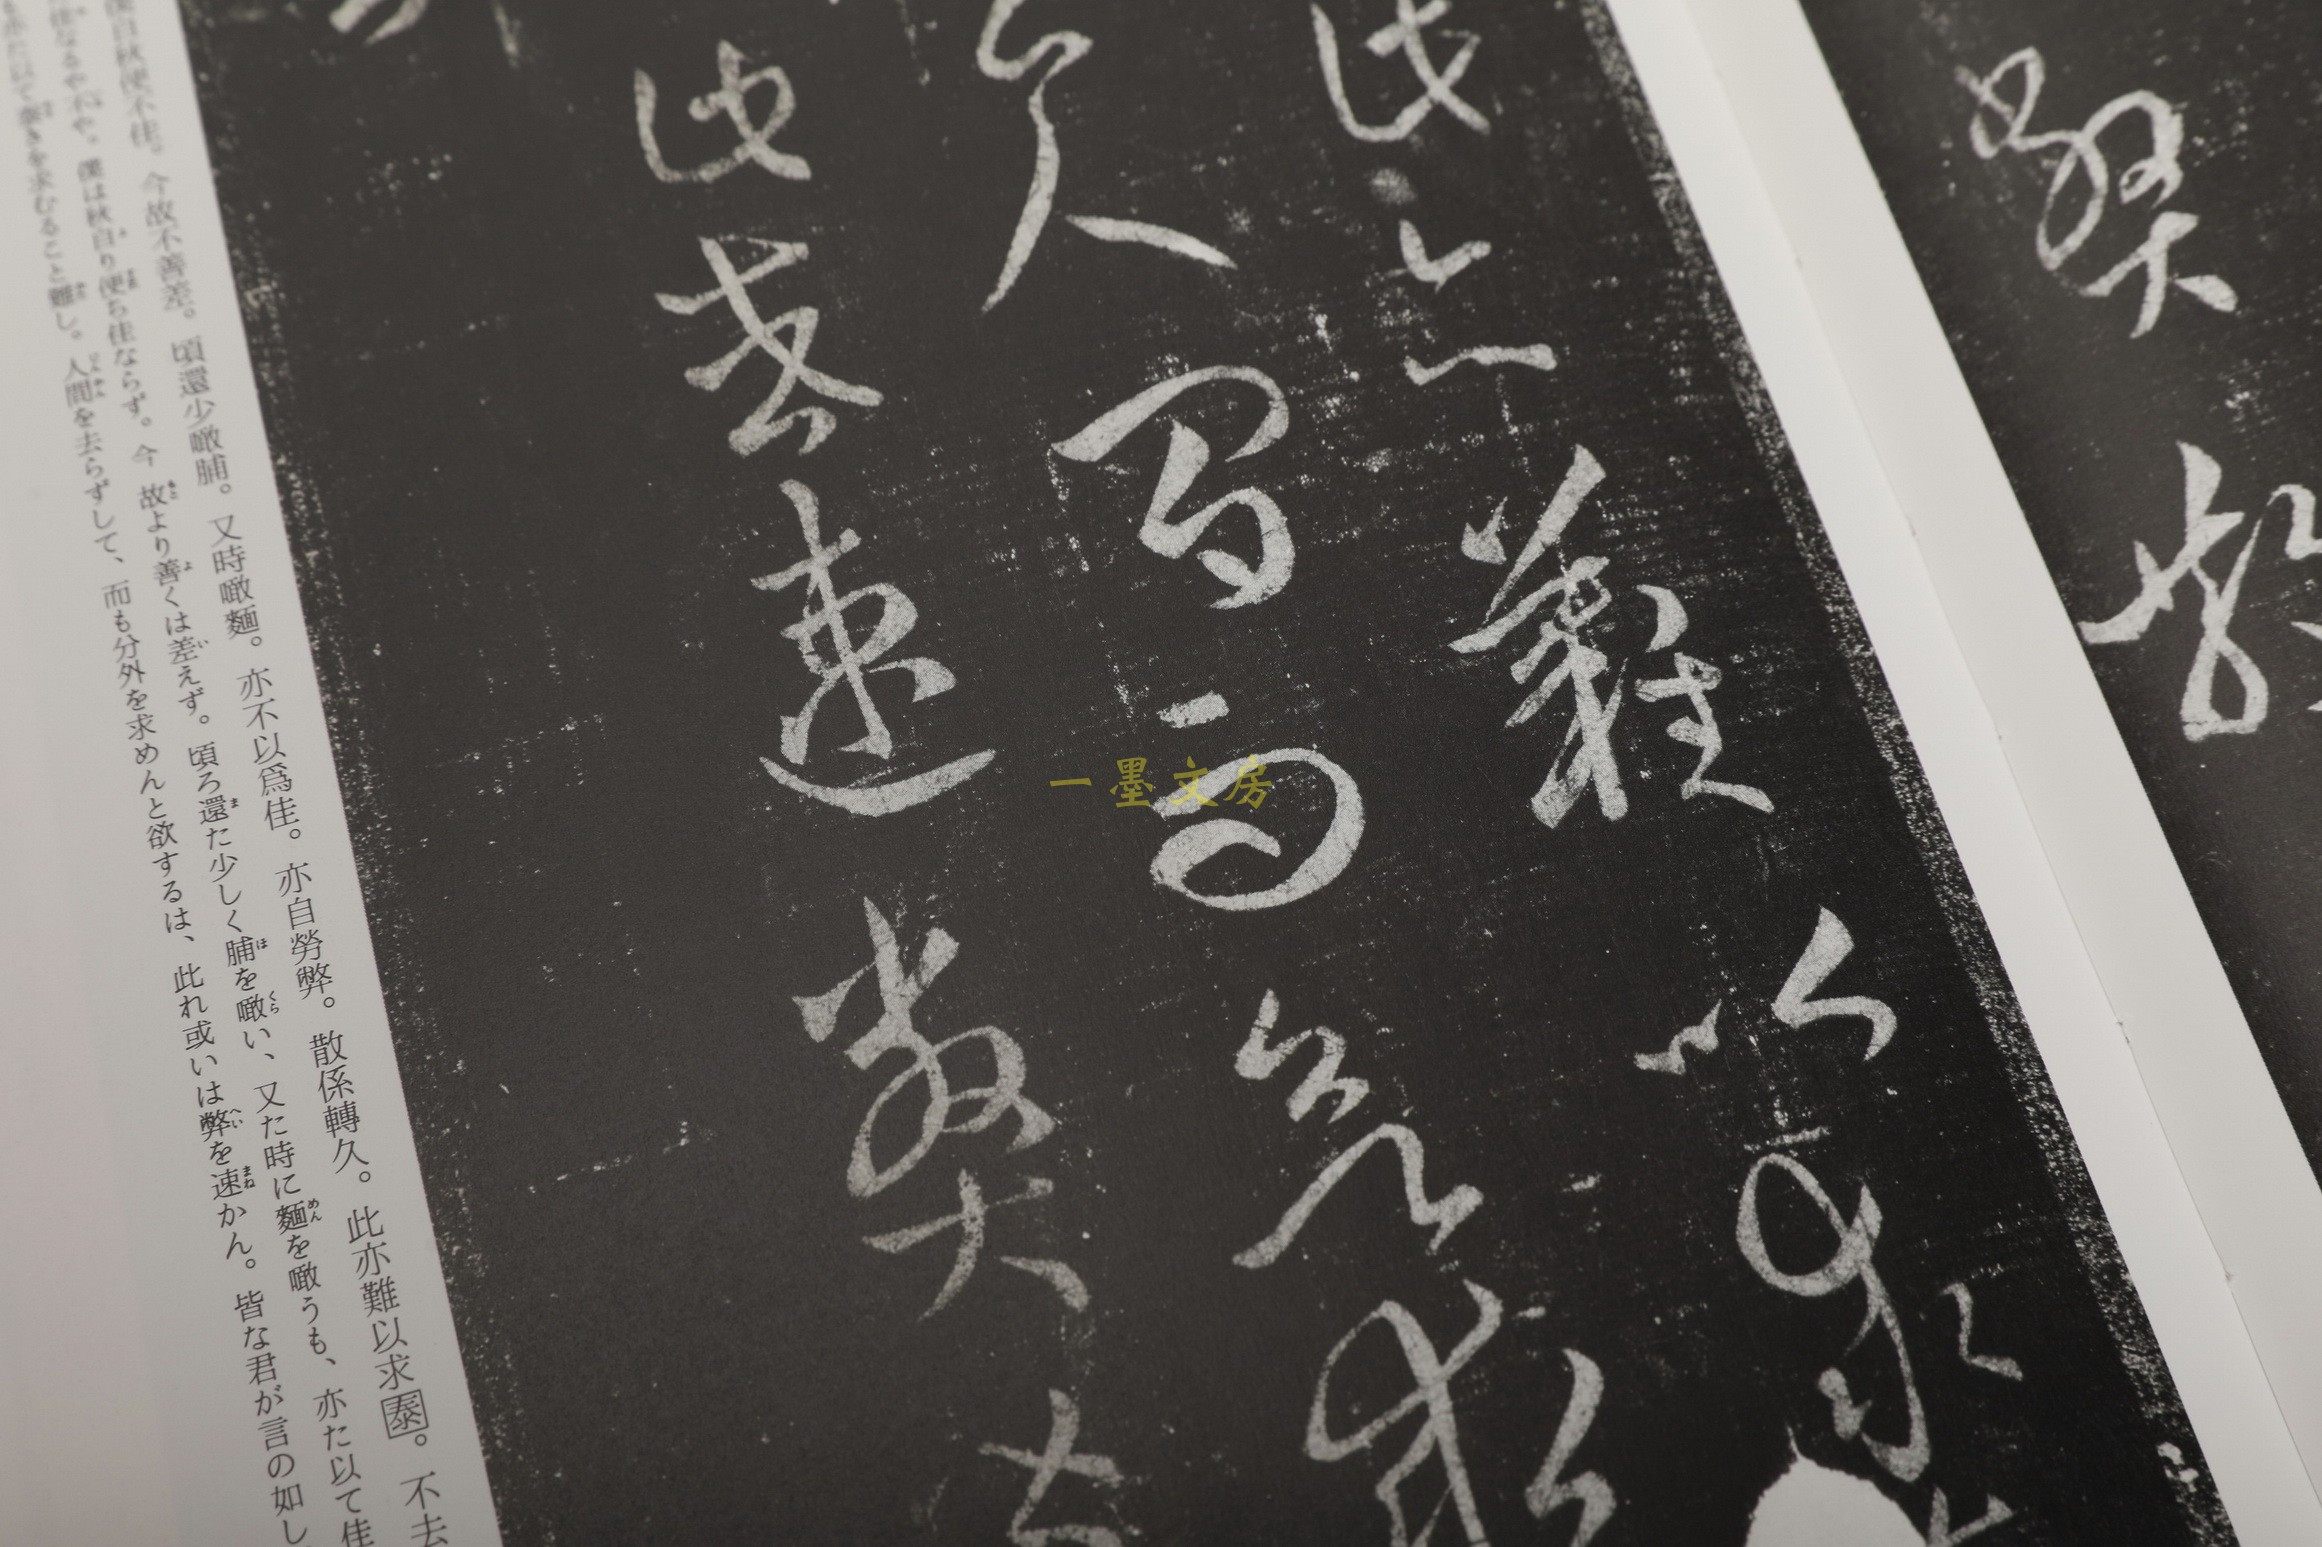 弊散
此亦難以求
人間而欲求
此或速弊
僕自秋便不佳。今故不善差。頃還少噉脯。又時噉麵。亦不以爲佳。亦自勞弊。散係轉久。此亦難以求泰。不去
佳なるや不や。僕は秋自り便ち佳ならず。今 故より善くは差えず。頃ろ還た少しく脯を噉い、又た時に麵を噉うも、亦た以て佳
泰きを求むること難し。人間を去らずして、而も分外を求めんと欲するは、此れ或いは弊を速かん。皆な君が言の如し。
一墨文房